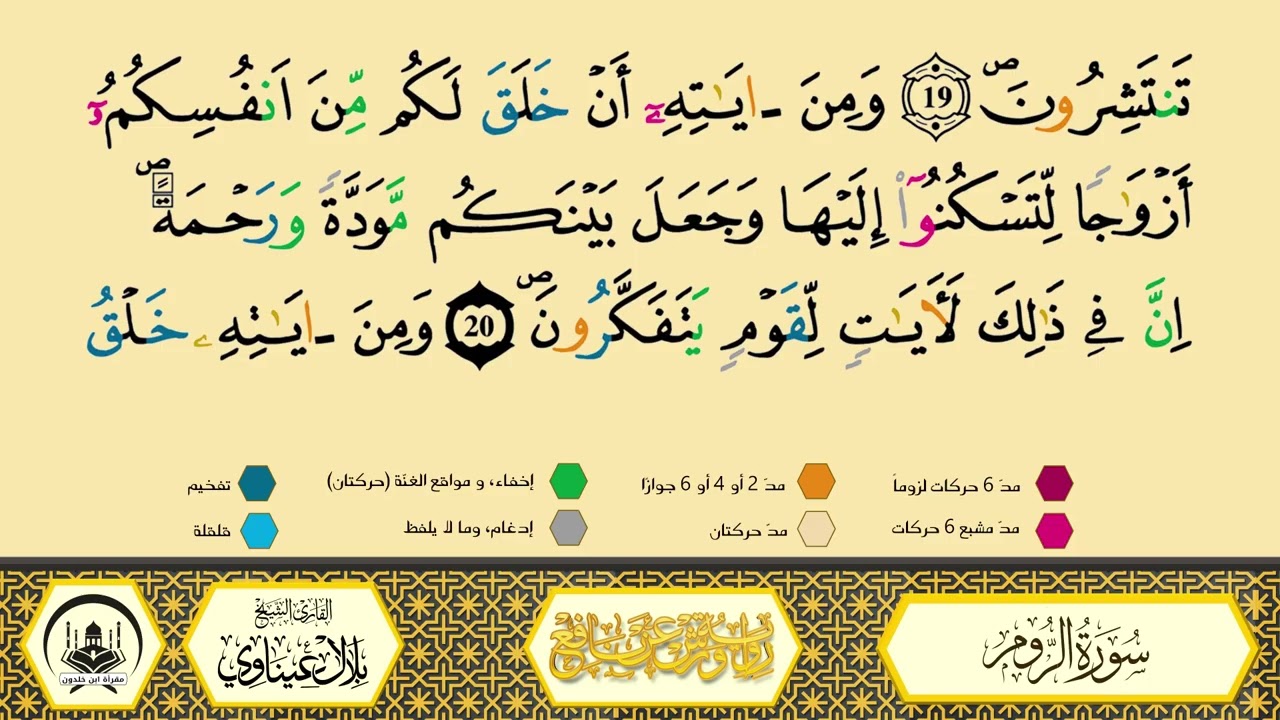 تَنتَشِرُونَۖ 19 وَمِنَ ـايَٰتِهِۦٓ أَنْ خَلَقَ لَكُم مِّنَ اَنفُسِكُمُۥٓ
أَزْوَٰجاٗ لِّتَسْكُنُوٓاْ إِلَيْهَا وَجَعَلَ بَيْنَكُم مَّوَدَّةٗ وَرَحْمَةًۖ
اِنَّ فِے ذَٰلِكَ لَأٓيَٰتٖ لِّقَوْمٖ يَتَفَكَّرُونَۖ 20 وَمِنَ ـايَٰتِهِۦ خَلْقُ
مدّ 6 حركات لزوماً
مدّ 2 أو 4 أو 6 جوازًا
إخفاء، و مواقع الغنّة (حركتان)
تفخيم
مدّ مشبع 6 حركات
مدّ حركتان
إدغام، وما لا يلفظ
قلقلة
سُورَةُ الرُّومِ
رواية ورش عن نافع
القارئ الشيخ
بلال عيناوي
مقرأة ابن خلدون